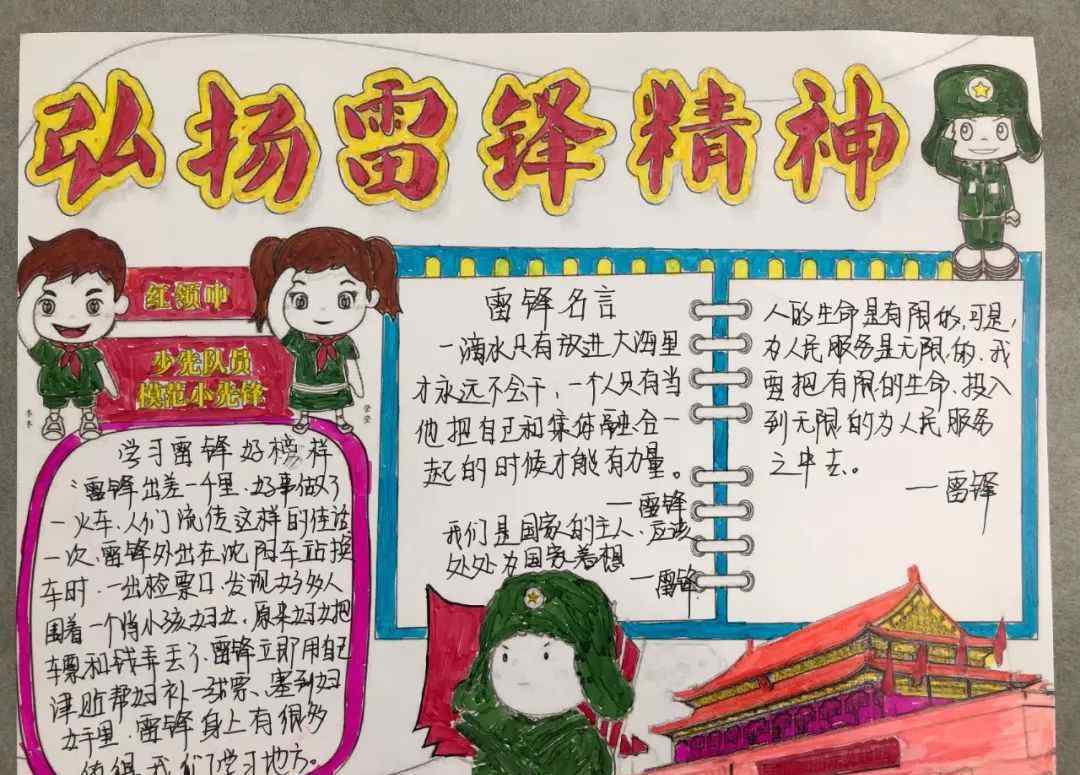 弘扬雷锋精神
红领巾
少先队员
模范小先锋
学习雷锋好榜样
雷锋出差一千里，好事做了
一火车，人们流传这样的佳话
一次，雷锋外出在沈阳车站换
车时，一出检票口，发现好多人
围着一个背小孩妇女，原来妇女把
车票和钱弄丢了，雷锋立即用自己
津贴帮妇补一张票、塞到妇
女手里，雷锋身上有很多
值得我们学习地方。
雷锋名言
一滴水只有放进大海里
才永远不会干，一个人只有当
他把自己和集体融合一
起的时候才能有力量。
—雷锋
我们是国家的主人，应该
处处为国家着想
—雷锋
人的生命是有限的，可是，
为人民服务是无限的，我
要把有限的生命，投入
到无限的为人民服务
之中去。
—雷锋